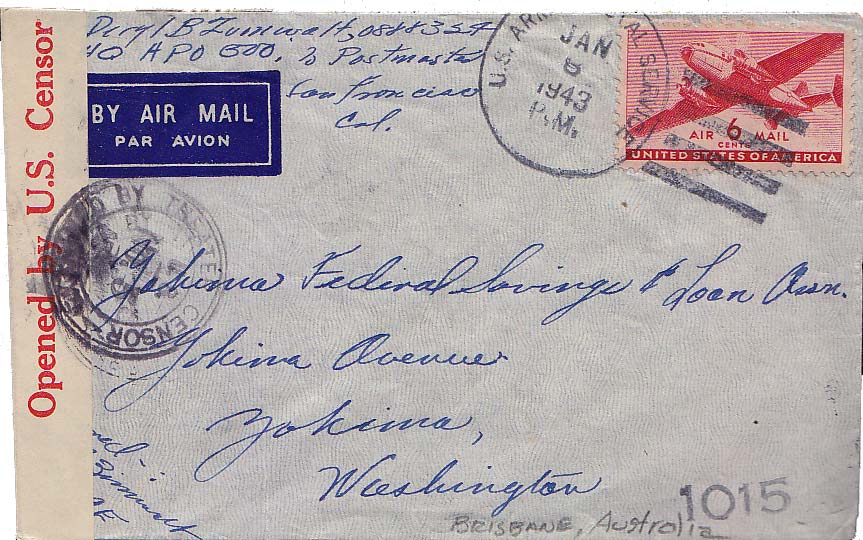 Opened by U.S. Censor
HQ APO 600, % Postmaster
San Francisco
Cal.
BY AIR MAIL
PAR AVION
U.S. ARMY POSTAL SERVICE
JAN
1943
P.M.
6
AIR MAIL
CENTS
UNITED STATES OF AMERICA
BY THEATER
CENSOR
Yakima Federal Savings & Loan Assn.
Yakima Avenue
Yakima,
Washington
1015
BRISBANE, Australia